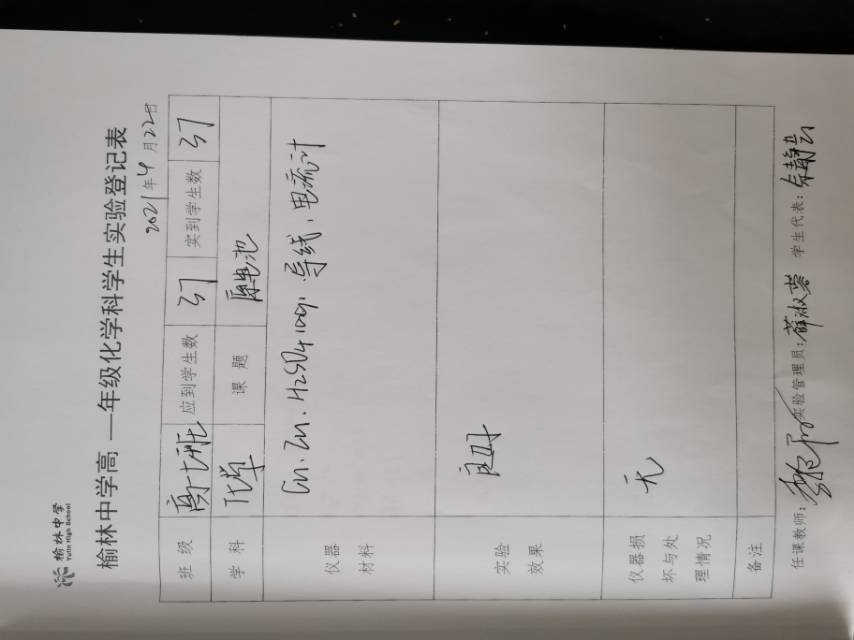 榆林中学
Yulin High School
榆林中学高一年级化学科学生实验登记表
2021年4月22日
班级 应到学生数 37 实到学生数 37
学科 化学 课题 原电池
仪器材料 Cu、Zn、H2SO4(aq)、导线、电流计
实验效果 良好
仪器损坏与处理情况 无
备注
任课教师: 实验管理员:薛淑蓉 学生代表: